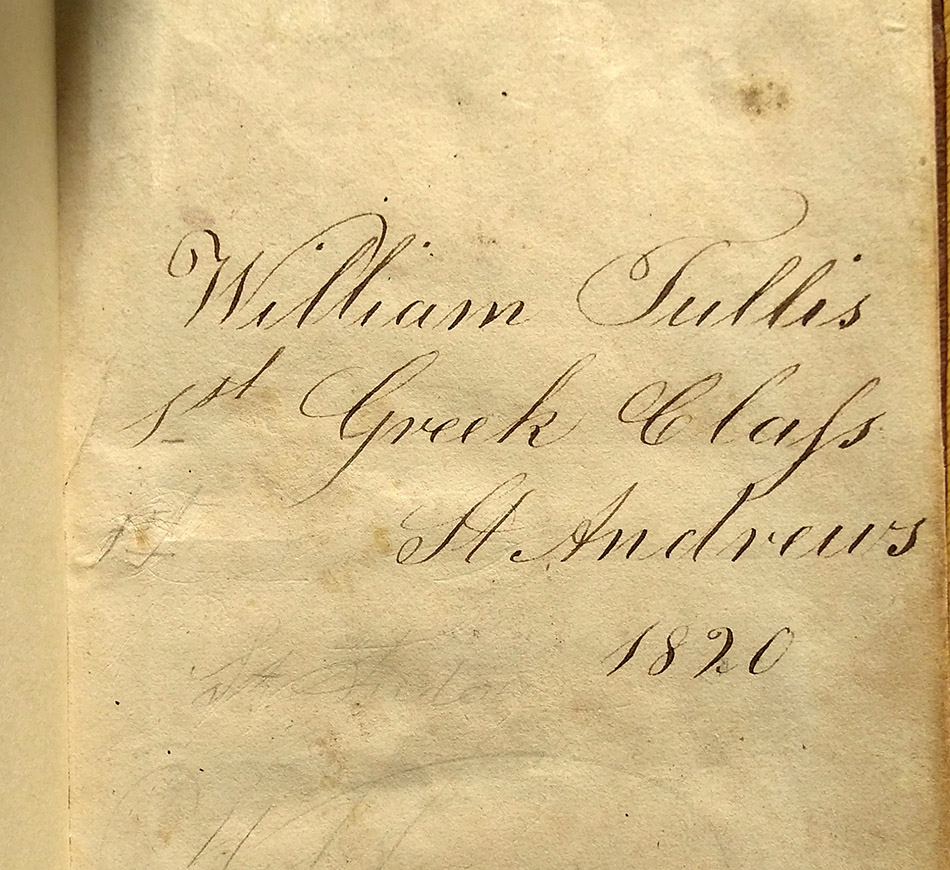 William Tullis
1st Greek Claſs
St Andrews
1st
1820